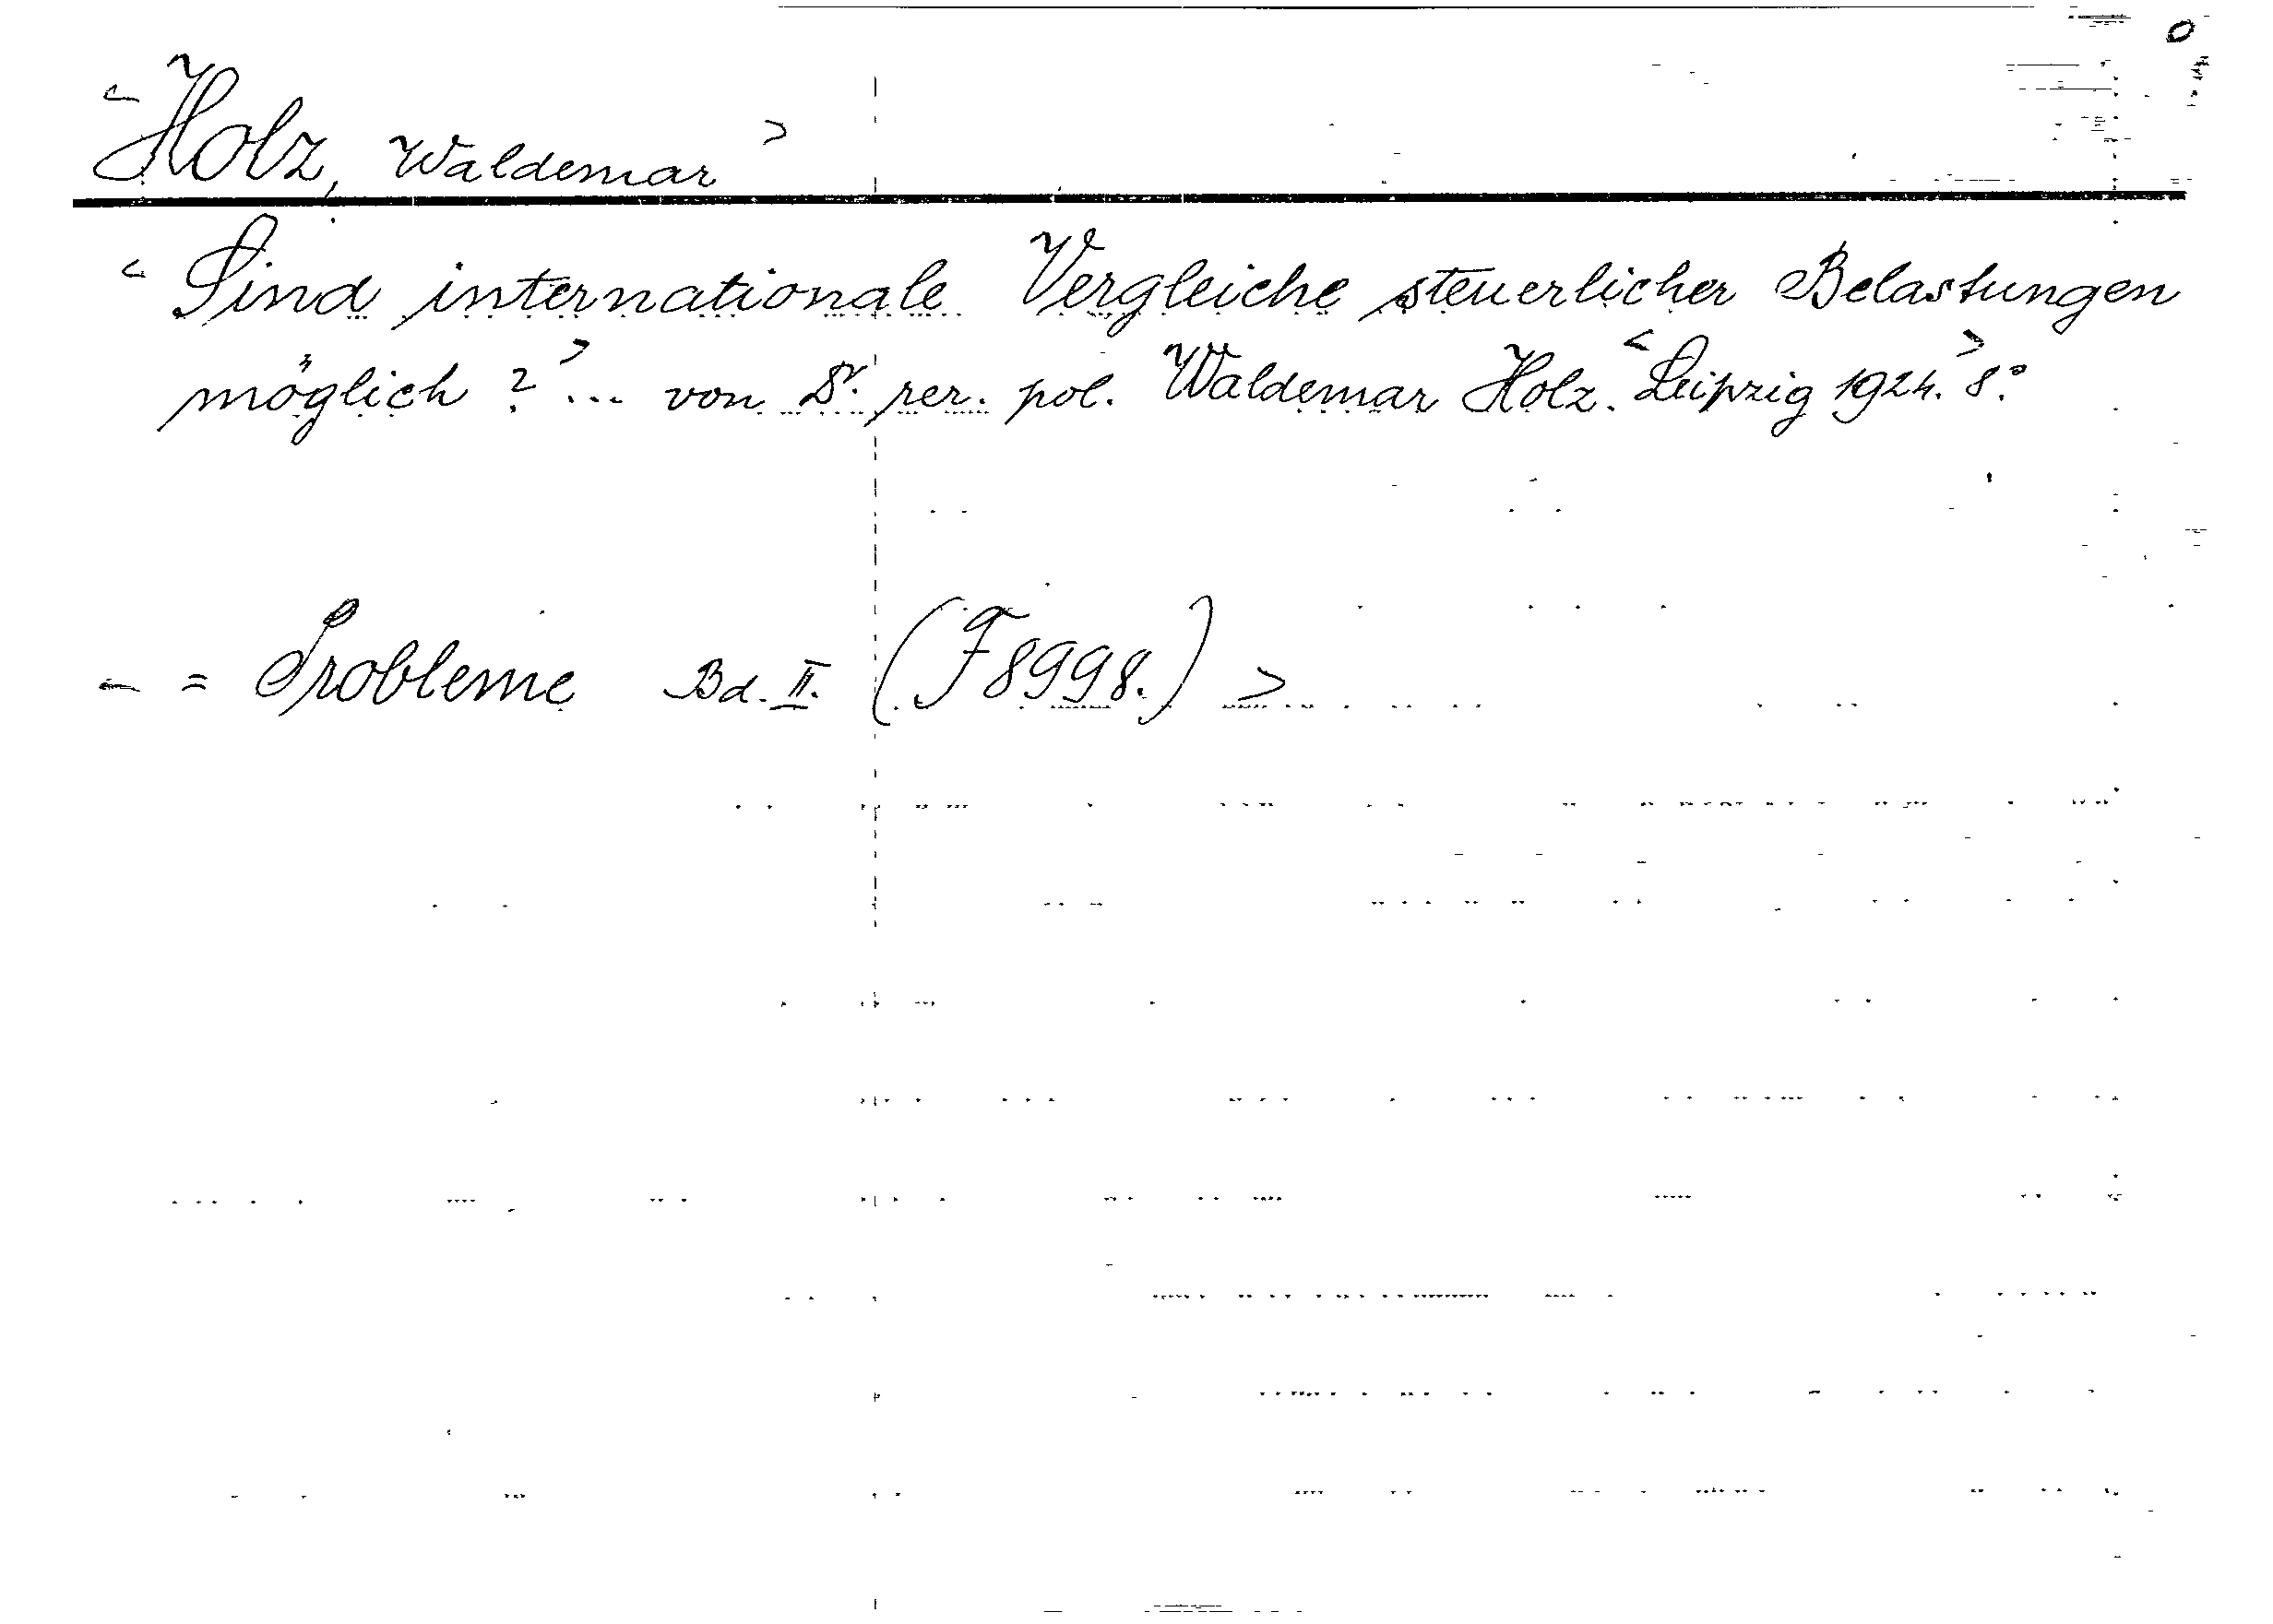 <Holz, Waldemar>
<Sind internationale Vergleiche steuerlicher Belastungen
möglich?> ... von Dr. rer. pol. Waldemar Holz. <Leipzig 1924.> 8°.
<= Probleme Bd. II. (F 8998.)>